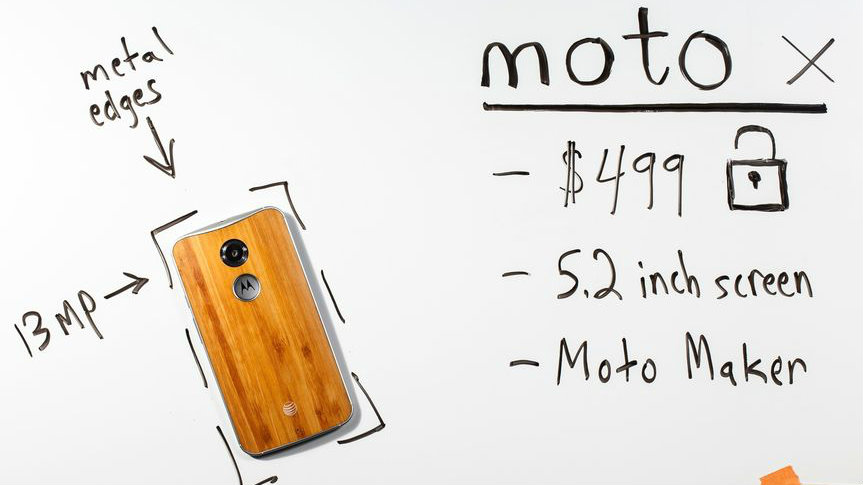 metal
edges
13 MP
moto x
- $499
- 5.2 inch screen
- Moto Maker